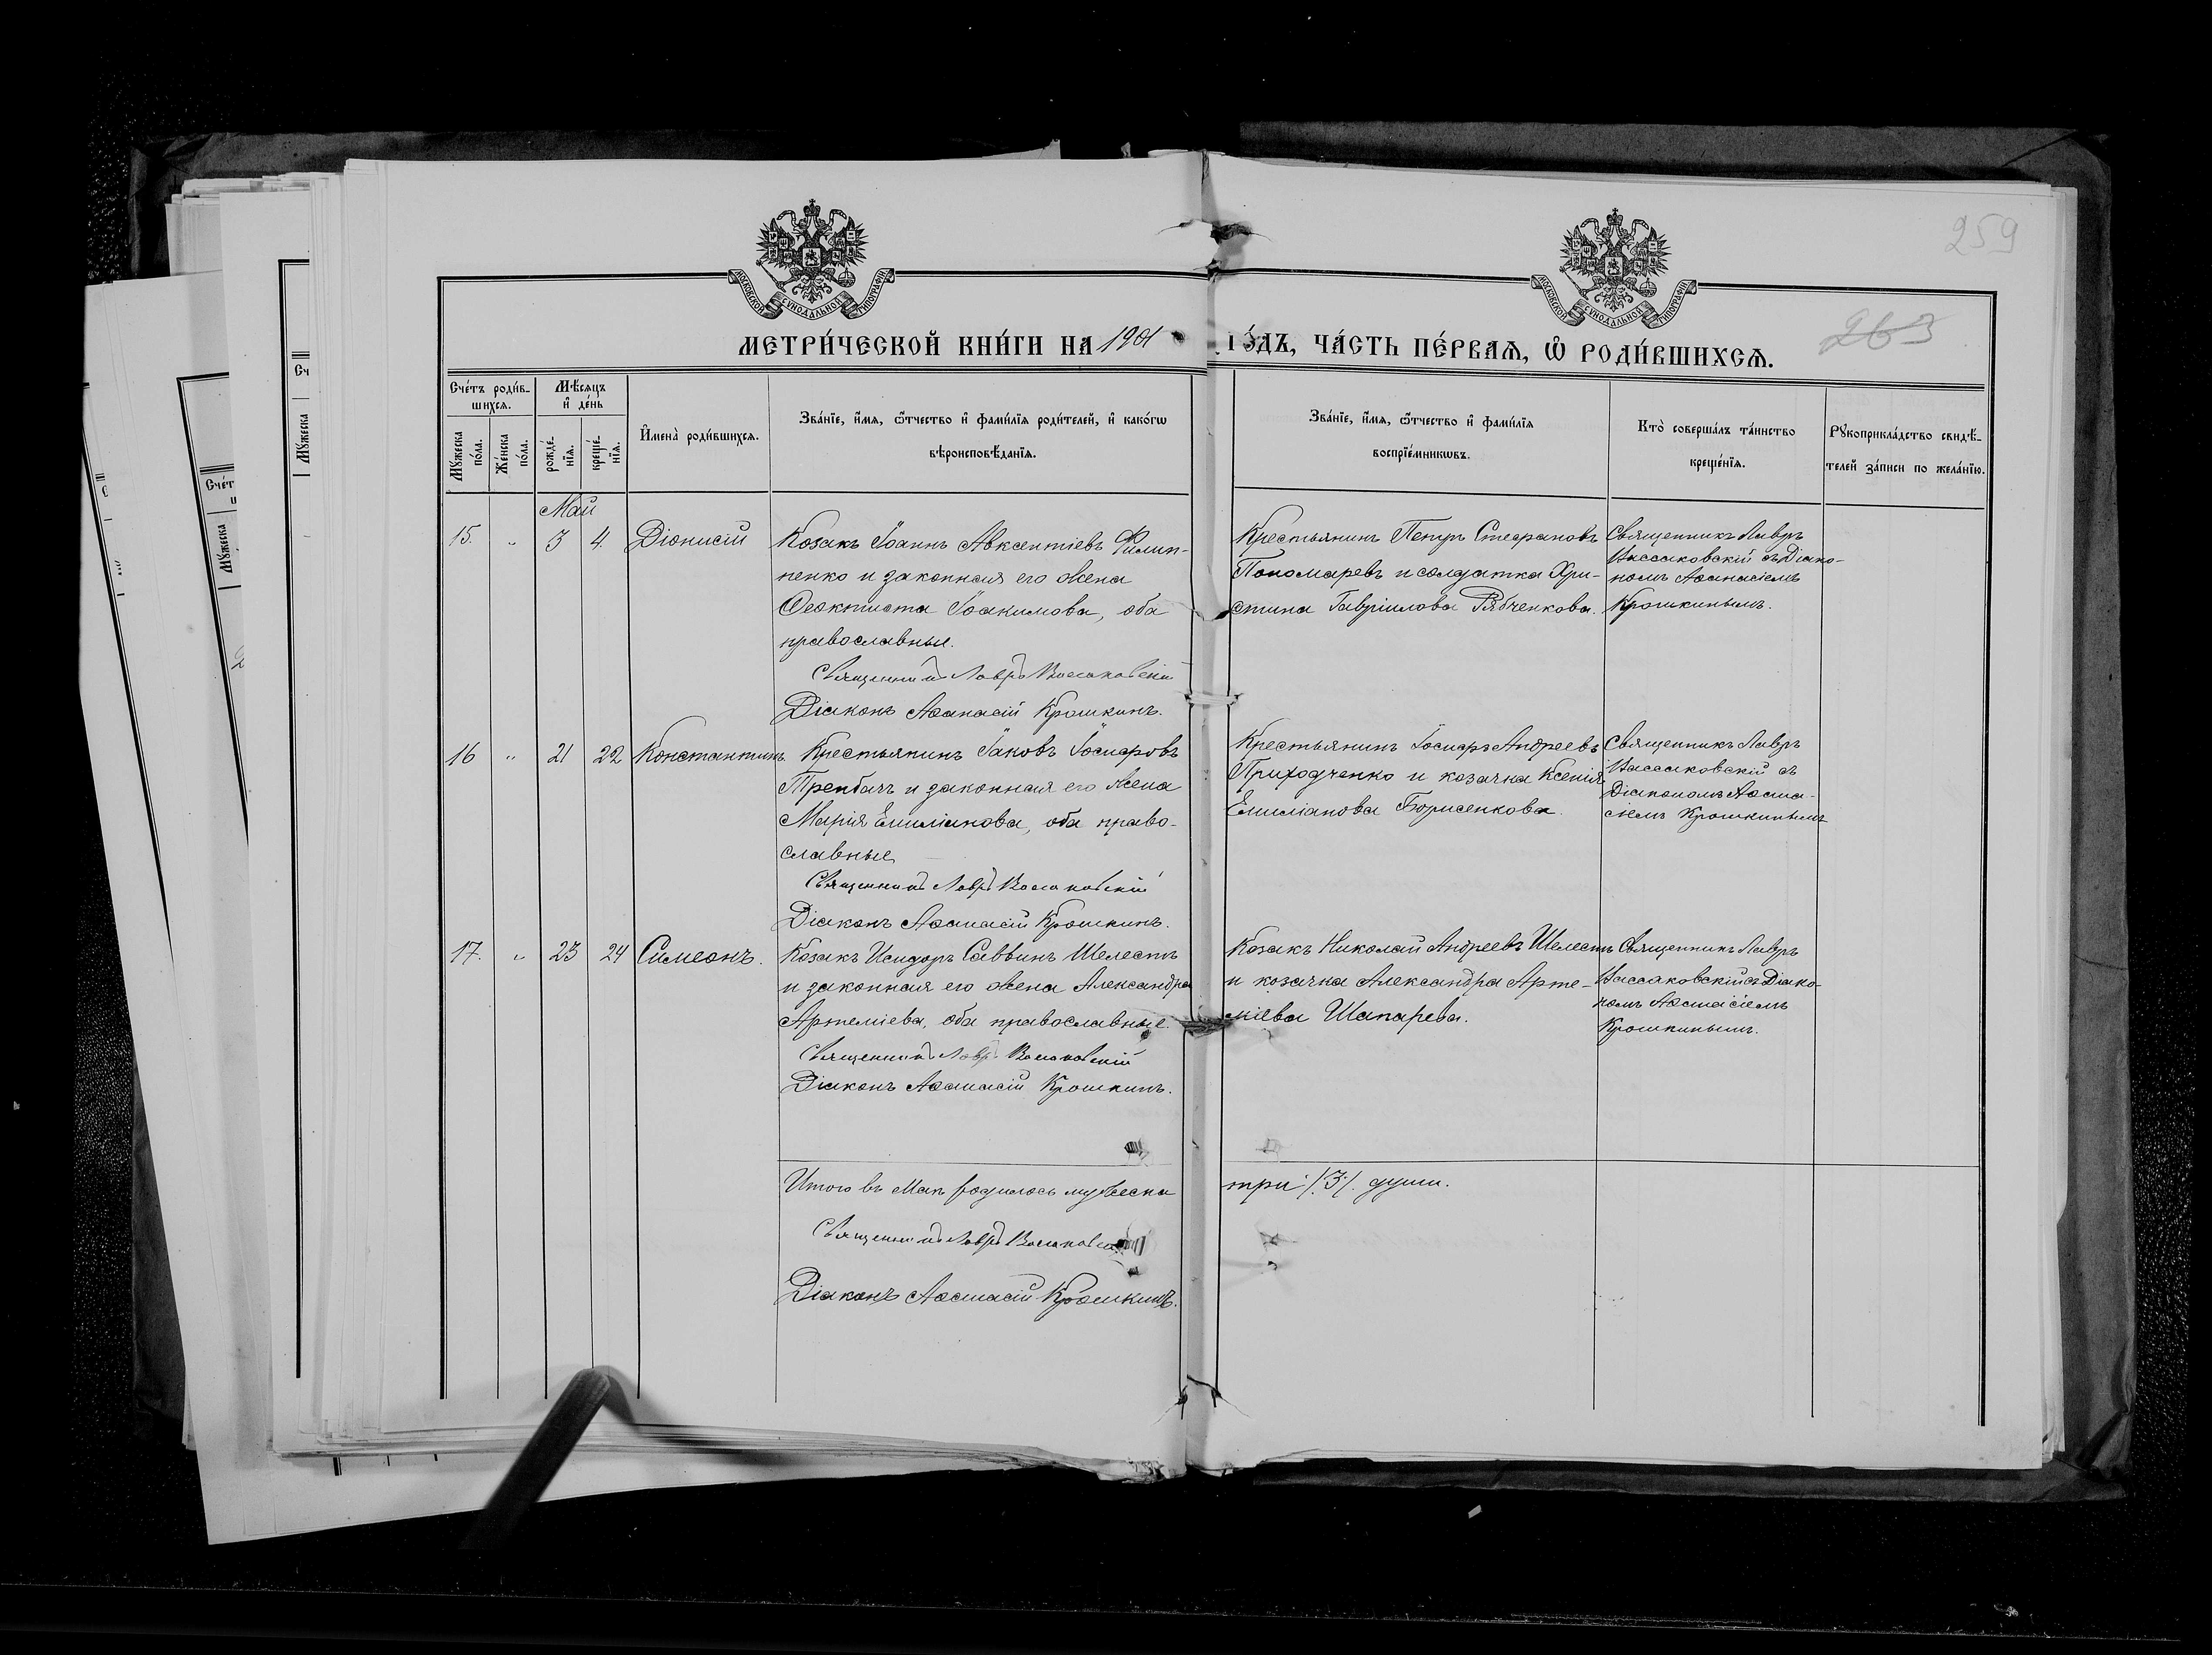 МОСКОВСКОЙ СУНОДАЛЬНОЙ ТИПОГРАФІИ
МОСКОВСКОЙ СУНОДАЛЬНОЙ ТИПОГРАФІИ
259
263
МЕТРИ́ЧЕСКОЙ КНИ́ГИ НА 1901 ГО́ДЪ, ЧА́СТЬ ПЕ́РВАѦ, Ѡ҆ РОДИ́ВШИХСѦ.
Сче́тъ роди́в-
шихсѧ.
Мѣ́сѧцъ
и҆ де́нь
Мꙋ́жеска
по́ла.
Же́нска
по́ла.
рожде́-
нїѧ.
креще́-
нїѧ.
И҆мена̀ роди́вшихсѧ.
Зва́нїе, и҆́мѧ, ѻ҆́тчество и҆ фами́лїѧ роди́телей, и҆ како́гѡ
вѣроисповѣ́данїѧ.
Зва́нїе, и҆́мѧ, ѻ҆́тчество и҆ фами́лїѧ
воспрїе́мникѡвъ.
Кто̀ соверша́лъ та́инство
креще́нїѧ.
Рꙋкоприкла́дство свидѣ́-
телей за́писи по жела́нїю.
Май
15. " 3 4. Діонисій
Козакъ Іоаннъ Авксентіевъ Филип-
пенко и законная его жена
Ѳеоктиста Іоакимова, оба
православные.
Священникъ Лавръ
Діаконъ Аѳанасій Крошкинъ.
Крестьянинъ Петръ Стефановъ
Пономаревъ и солдатка Хри-
стина Гавріилова Рябченкова.
Священникъ Лавръ
съ Діако-
номъ Аѳанасіемъ
Крошкинымъ.
16 " 21 22 Константинъ.
Крестьянинъ Іаковъ Іосифовъ
Трембачъ и законная его жена
Марія Емиліанова, оба право-
славные
Священникъ Лавръ
Діаконъ Аѳанасій Крошкинъ.
Крестьянинъ Іосифъ Андреевъ
Приходченко и козачка Ксенія
Емиліанова Борисенкова.
Священникъ Лавръ
съ
Діакономъ Аѳана-
сіемъ Крошкинымъ
17. " 23 24 Симеонъ.
Козакъ Исидоръ Саввинъ Шелестъ
и законная его жена Александра
Артеміева, оба православные.
Священникъ Лавръ
Діаконъ Аѳанасій Крошкинъ.
Козакъ Николай Андреевъ Шелестъ
и козачка Александра Арте-
міева Шапарева.
Священникъ Лавръ
съ Діако-
номъ Аѳанасіемъ
Крошкинымъ.
Итого въ Маѣ родилось мужеска
три /3/. души.
Священникъ Лавръ
Діаконъ Аѳанасій Крошкинъ.